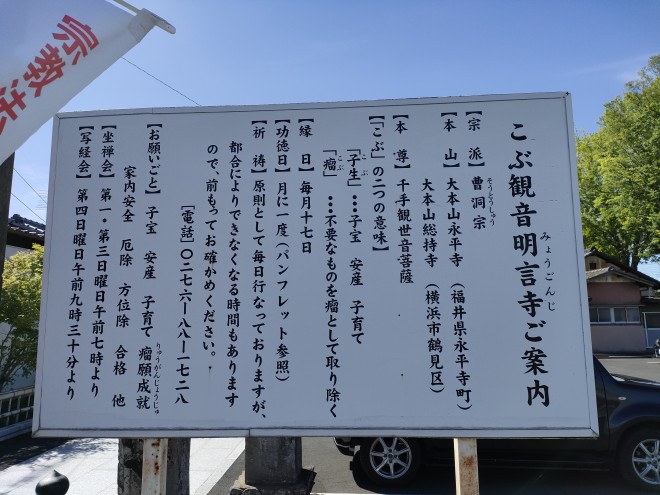 宗教法
こぶ観音明言寺ご案内
みょうごんじ
【宗派】曹洞宗
そうとうしゅう
【本山】大本山永平寺（福井県永平寺町）
大本山総持寺（横浜市鶴見区）
【本尊】千手観世音菩薩
【「こぶ」の二つの意味】
「子生」…子宝 安産 子育て
こぶ
「瘤」…不要なものを瘤として取り除く
こぶ
【縁日】毎月十七日
【功徳日】月に一度（パンフレット参照）
【祈祷】原則として毎日行なっておりますが、
都合によりできなくなる時間もあります
ので、前もってお確かめください。
［電話］〇二七六ー八八ー一七二八
【お願いごと】子宝 安産 子育て 瘤願成就
りゅうがんじょうじゅ
家内安全 厄除 方位除 合格 他
【坐禅会】第一・第三日曜日午前七時より
【写経会】第四日曜日午前九時三十分より